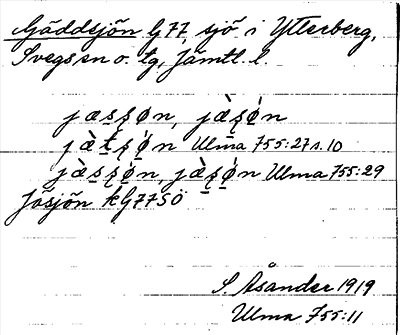 Gäddsjön G77 sjö i Ytterberg,
Svegs sn o. tg, Jämtl. l.
jæṣʂøn, jæ̀ʂǿn
jæ̀ṭʂǿn Ulma 755:27 s. 10
jæ̀ṣʂǿn, jæ̀ʂǿn Ulma 755:29
Jösjön kG77SÖ
S. Åsander 1919
Ulma 755:11